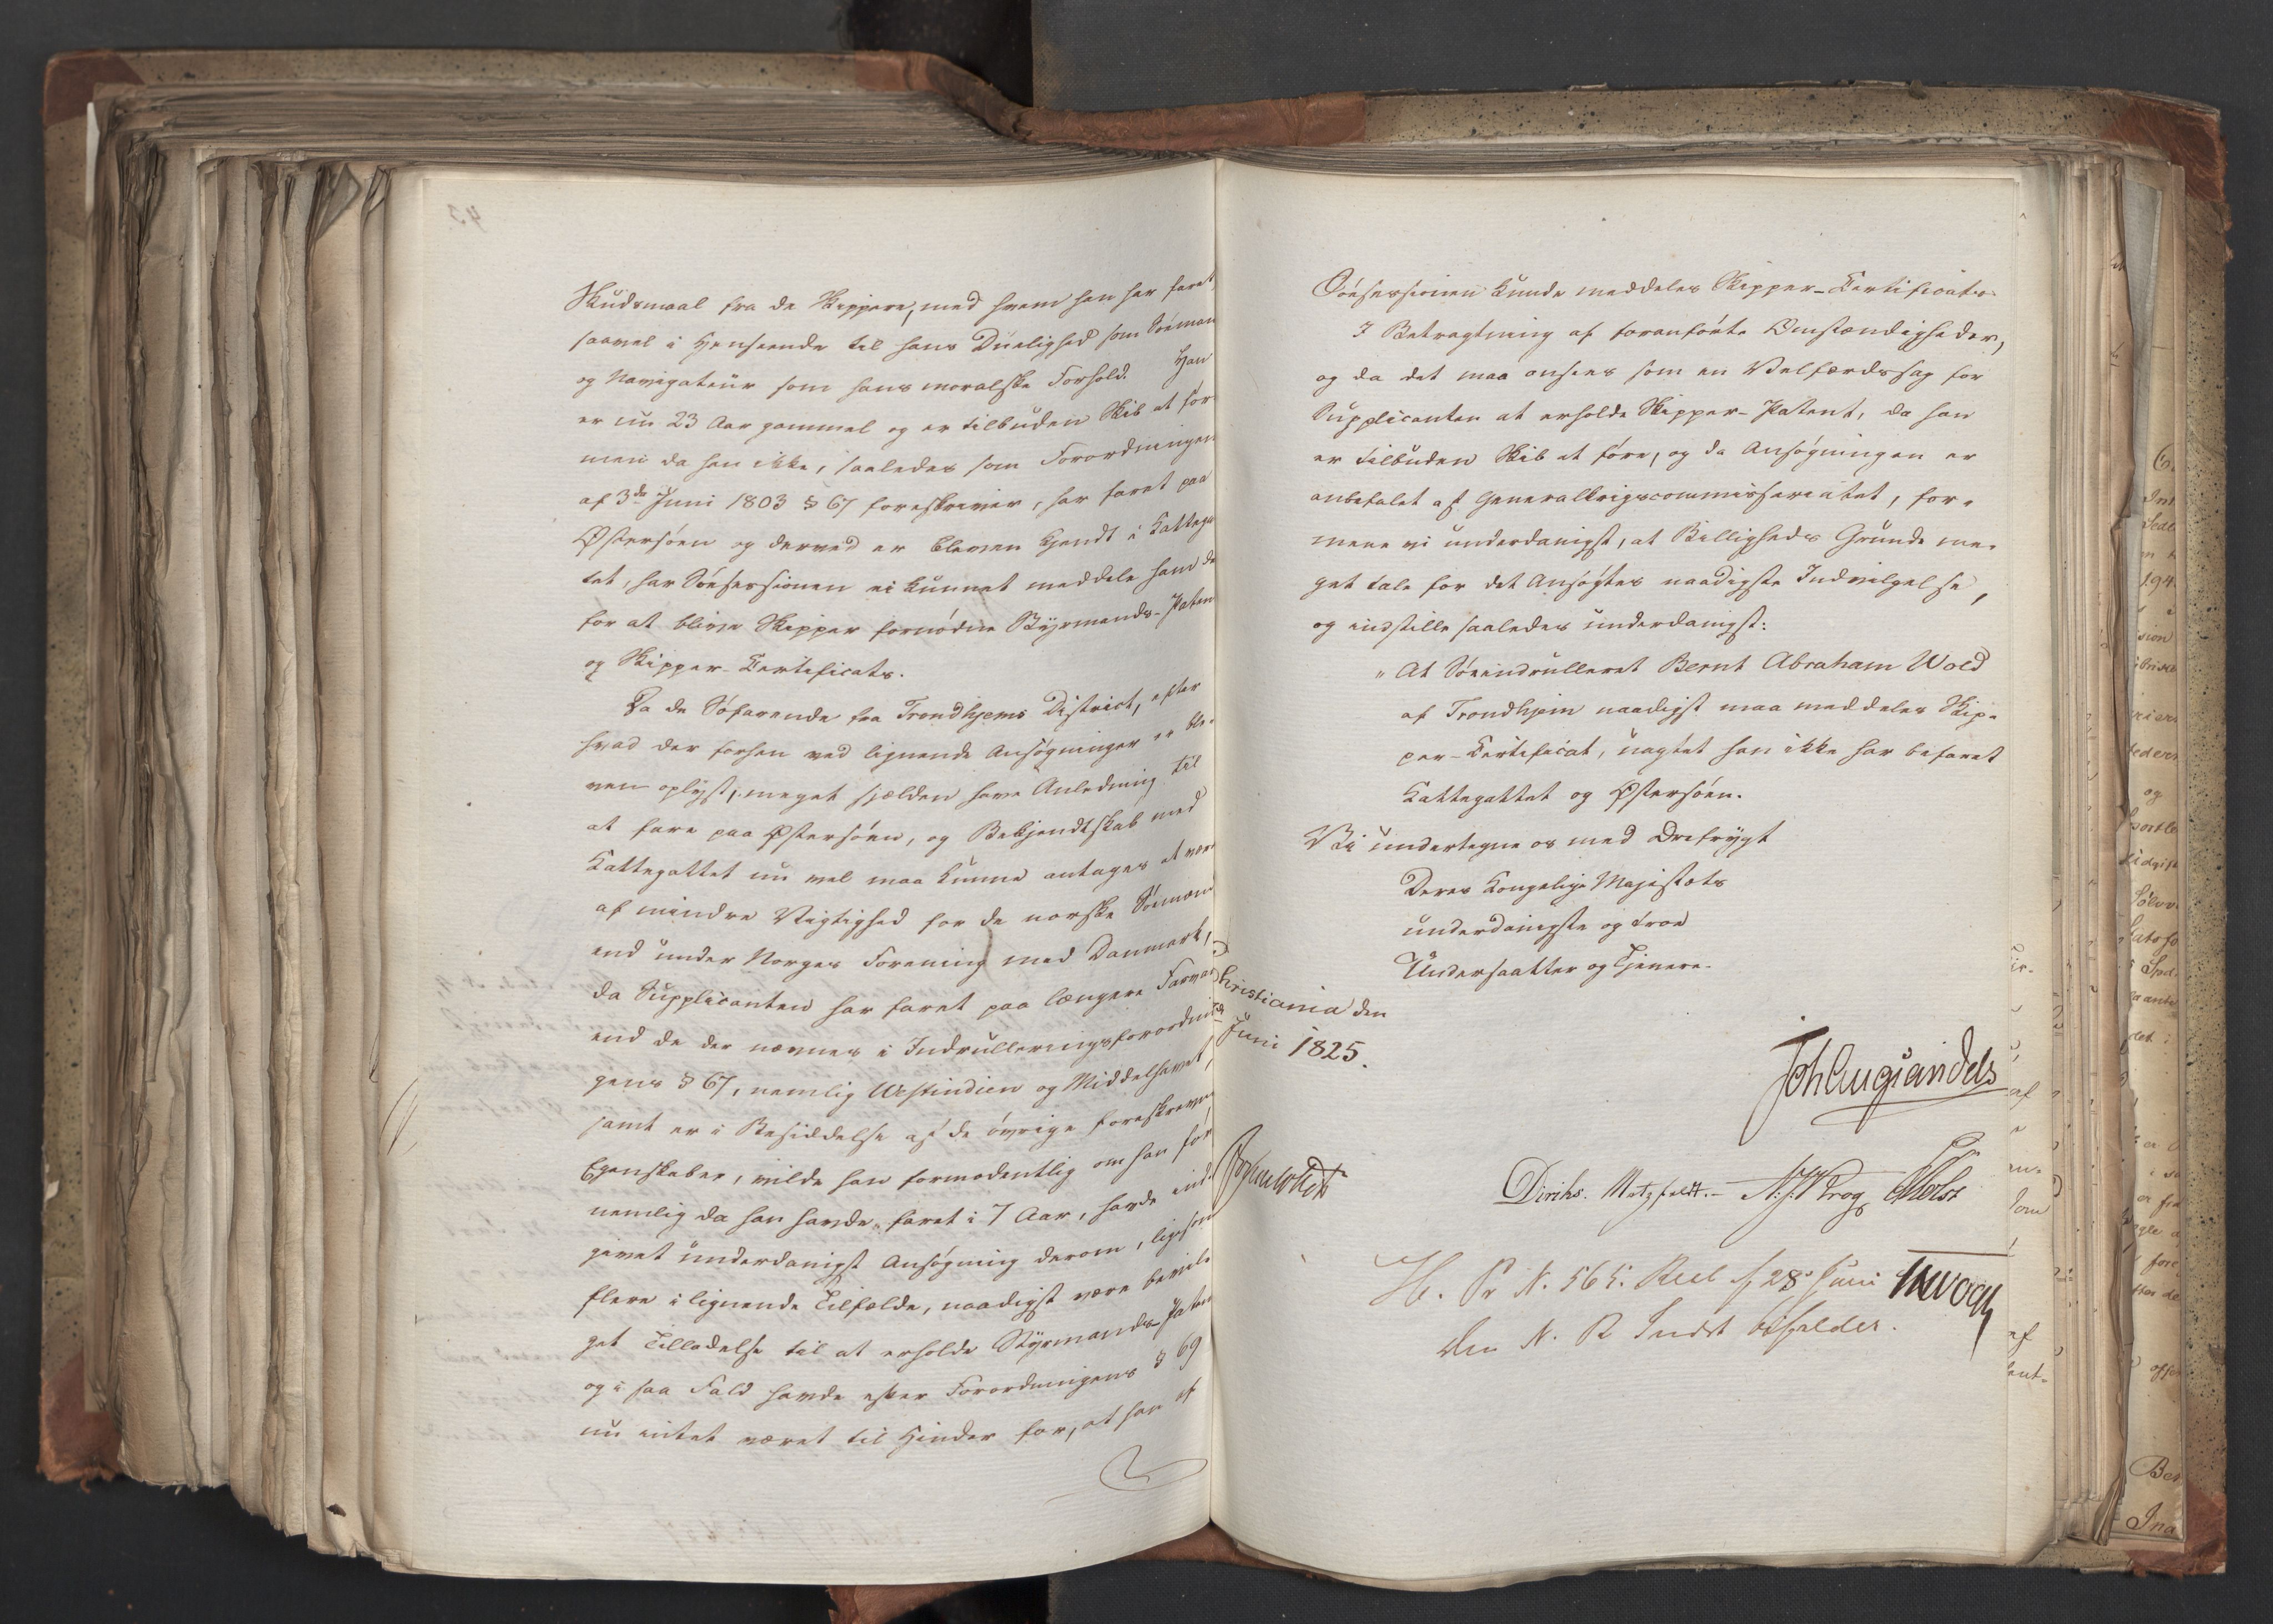 Skudsmaal fra de Skippere, med hvem han har faret,
saavel i Henseende til hans Duelighed som Søeman
og Navigateur som hans moralske Forhold. Han
er nu 23 Aar gammel og er tilbuden Skib at før
men da han ikke, saaledes som Forordningen
af 3de Juni 1803 § 67 foreskriver, har faret paa
Østersøen og derved er bleven kjendt i Kattega
tet, har Søesessionen ei kunnet meddele ham de
for at blive Skipper fornødne Styrmands-Paten
og Skipper-Certificater.
Da de Søfarende fra Trondhjems District, efter
hvad der forhen ved lignende Ansøgninger er ble-
ven oplyst, meget sjelden have Anledning til
at fare paa Østersøen, og Bekjendtskab med
Kattegattet nu vel maa kunne antages at være
af mindre Vigtighed for de norske Søemæn
end under Norges Forening med Danmark,
da Supplicanten har faret paa længere Farvan
end de der nævnes i Indrulleringsforordnin
gens § 67, nemlig Vestindien og Middelhavet,
samt er i Besiddelse af de øvrige foreskrevne
Egenskaber, vilde han formodentlig om han for,
nemlig da han havde faret i 7 Aar, havde ind-
givet underdanigst Ansøgning derom, ligesom
flere i lignende Tilfælde, naadigst være bevil-
get Tilladelse til at erholde Styrmands-Paten
og i saa Fald havde efter Forordningens § 69
nu intet været til Hinder for, at han af
Søesessionen kunde meddeles Skipper-Certificat.
I Betragtning af foranførte Omstændigheder,
og da det maa ansees som en Velfærdssag for
Supplicanten at erholde Skipper-Patent, da han
er tilbuden Skib at føre, og da Ansøgningen er
anbefalet af Generalkrigscommissariatet, for-
mene vi underdanigst, at Billigheds Grunde me-
get tale for det Ansøgtes naadigste Indvilgelse,
og indstille saaledes underdanigst:
"At Søeindrulleret Bernt Abraham Wold
af Trondhjem naadigst maa meddeles Skip-
per-Certificat, uagtet han ikke har befaret
Kattegattet og Østersøen.
Vi undertegne os med Ærefrygt
Deres Kongelige Majestæts
underdanigste og troe
Undersaatter og Tjenere.
Christiania den
Juni 1825.
Joh Aug Sandels
Diriks. Motzfeldt. - N. J. W Krog PMHolst
H. Pr N. 565. Resl af 28 Juni
den N. R Indst bifaldes.